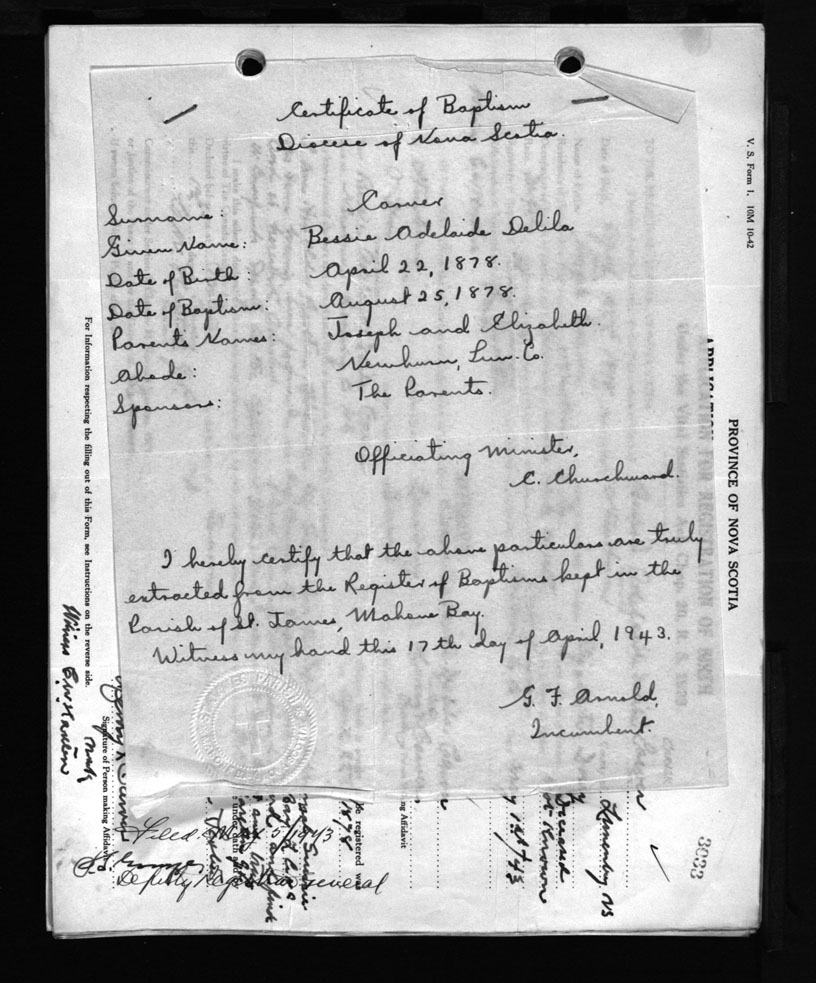 Certificate of Baptism
Diocese of Nova Scotia.
Surname: Carver
Given Name: Bessie Adelaide Delila
Date of Birth: April 22, 1878.
Date of Baptism: August 25, 1878.
Parents Names: Joseph and Elizabeth.
Abode: Newburn, Lun. Co.
Sponsors: The Parents.
Officiating Minister,
C. Churchward.
I hereby certify that the above particulars are truly
extracted from the Register of Baptisms kept in the
Parish of St. James, Mahone Bay.
Witness my hand this 17th day of April, 1943.
G. F. Arnold,
Incumbent.
Filed. May 5/1943
Deputy Registrar General
V. S. Form 1. 10M 10-42
PROVINCE OF NOVA SCOTIA
APPLICATION FOR REGISTRATION OF BIRTH
3033
Lunenburg NS
Known
be registered was
1878
ng Affidavit
Signature of Person making Affidavit
Witness
mark
For Information respecting the filling out of this Form, see Instructions on the reverse side.